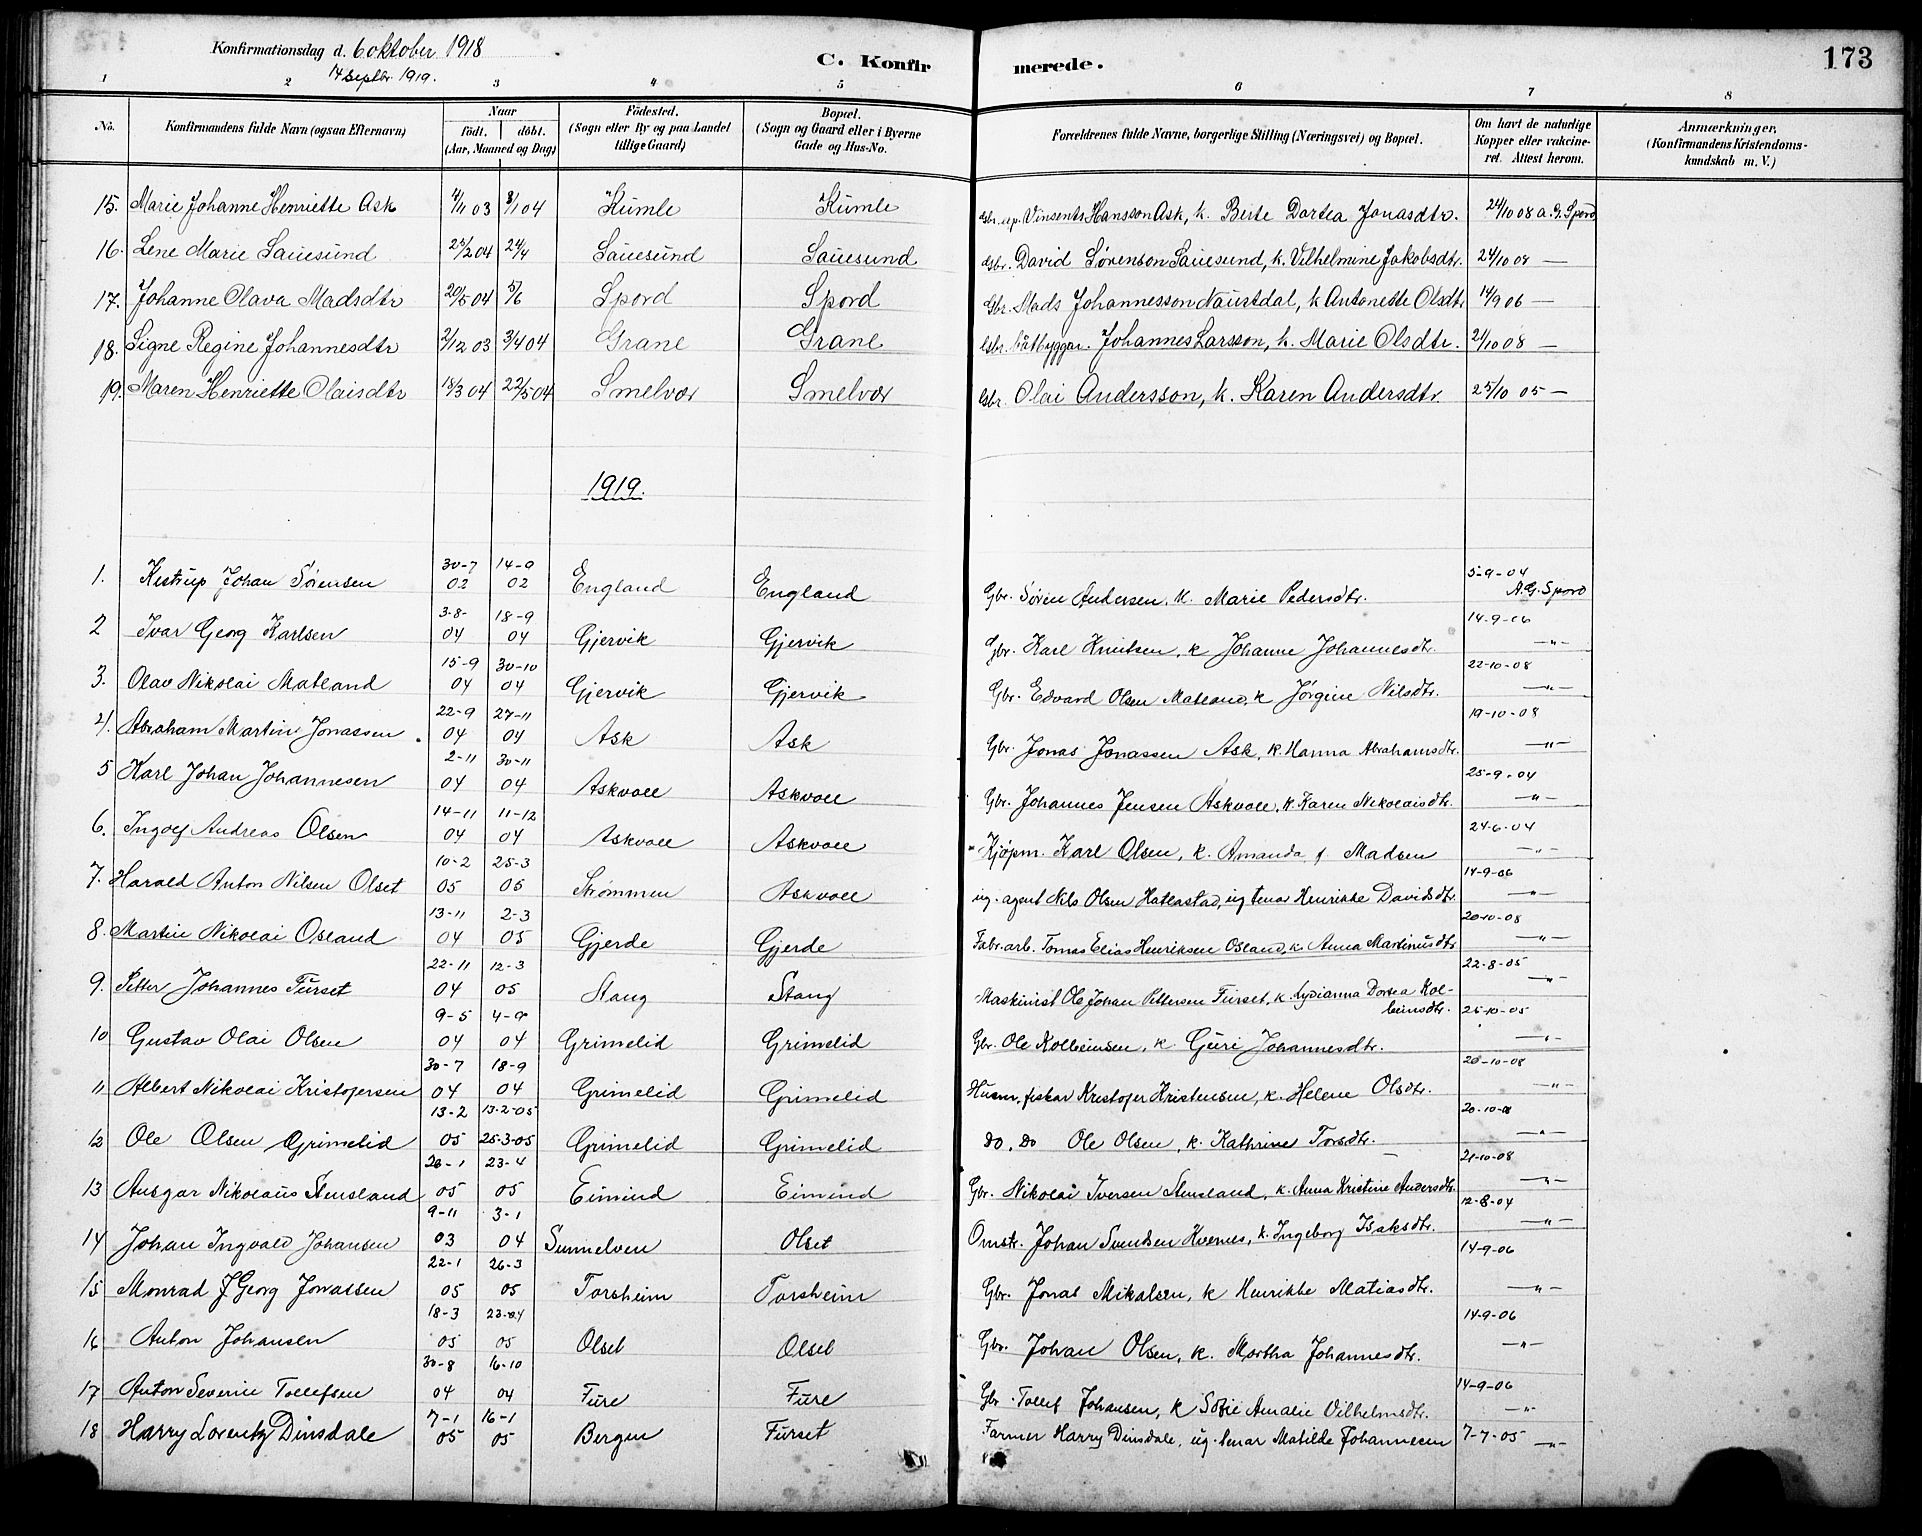 Konfirmationsdag d. 6 oktober 1918
14 septbr. 1919.
C. Konfirmerede.
173
1 2 3 4 5 6 7 8
No. Konfirmandens fulde Navn (ogsaa Efternavn) Naar födt. döbt. (Aar, Maaned og Dag) Födested. (Sogn eller By og paa Landet tillige Gaard) Bopæl. (Sogn og Gaard eller i Byerne Gade og Hus-No. Forældrenes fulde Navne, borgerlige Stilling (Næringsvei) og Bopæl. Om havt de naturlige Kopper eller vakcineret. Attest herom. Anmærkninger, (Konfirmandens Kristendomskundskab m. V.)
15. Marie Johanne Henriette Ask 4/11 03 3/1 04 Kumle Kumle Gbr. Vinsents Hansson Ask, k. Berte Dortea Jonasdtr. 24/10 08 A. G. Spord
16. Lene Marie Sauesund 23/2 04 24/4 Sauesund Sauesund Gbr. David Sørenson Sauesund, k. Vilhelmine Jakobsdtr. 24/10 08 —
17. Johanne Olava Madsdtr 20/5 04 5/6 Spord Spord Gbr. Mads Johannesson Naustdal, k Antonette Olsdtr 14/9 06 —
18. Signe Regine Johannesdtr 2/12 03 3/4 04 Grane Grane Gbr. båtbyggar. Johannes Larsson, k. Marie Olsdtr. 21/10 08 —
19. Maren Henriette Olaisdtr 18/3 04 22/5 04 Smelvær Smelvær Gbr. Olai Andersson, k. Karen Andersdtr. 25/10 05 —
1919.
1. Kistrup Johan Sørensen 30-7 02 14-9 02 England England Gbr. Søren Andersen. k. Marie Pedersdtr. 5-9-04 A. G. Spord
2 Ivar Georg Karlsen 3-8- 04 18-9 04 Gjervik Gjervik Gbr. Karl Knutsen, k Johanne Johannesdtr. 14-9-06 —"—
3. Olav Nikolai Matland 15-9 04 30-10 04 Gjervik Gjervik Gbr. Edvard Olsen Matland, k Jørgine Nilsdtr. 22-10-08 —"—
4. Abraham Martin Jonassen 22-9 04 27-11 04 Ask Ask Gbr. Jonas Jonassen Ask, k. Hanna Abrahamsdtr. 19-10-08 —"—
5 Karl Johan Johannesen 2-11 04 30-11 04 Askvoll Askvoll Gbr. Johannes Jensen Askvoll, k. Karen Nikolaisdtr. 25-9-04 —"—
6. Ingolf Andreas Olsen 14-11 04 11-12 04 Askvoll Askvoll Kjøpm. Karl Olsen, k. Amanda f Madsen 24-6-04 —"—
7. Harald Anton Nilsen Olset 10-2 05 25-3 05 Strømmen Askvoll ug. agent Nils Olsen Hatlastad, ug tenar Henrikke Davidsdtr. 14-9-06 —"—
8. Martin Nikolai Osland 13-11 04 2-3 05 Gjerde Gjerde Fabr. arb. Tomas Elias Henriksen Osland, k. Anna Martinusdtr 20-10-08 —"—
9. Petter Johannes Furset 22-11 04 12-3 05 Stang Stang Maskinist Ole Johan Pettersen Furset, k. Lydianna Dortea Kolbeinsdtr. 22-8-05 —"—
10 Gustav Olai Olsen 9-5 04 4-9 04 Grimelid Grimelid Gbr. Ole Kolbeinsen, k. Guri Johannesdtr. 25-10-05 —"—
11 Albert Nikolai Kristofersen 30-7 04 18-9 04 Grimelid Grimelid Husm. fiskar Kristofer Kristensen, k. Helene Olsdtr. 20-10-08 —"—
12 Ole Olsen Grimelid 13-2 05 13-2-05 25-3-05 Grimelid Grimelid Do. Do Ole Olsen, k. Kathrine Torsdtr. 20-10-08 —"—
13 Ansgar Nikolaus Stensland 26-1 05 23-4 05 Eimind Eimind Gbr. Nikolai Iversen Stensland, k. Anna Kristine Andersdtr. 21-10-08 —"—
14 Johan Ingvald Johansen 9-11 03 3-1 04 Sunnelven Olset Omstr. Johan Svendsen Hvernes, k. Ingeborg Isaksdtr. 12-8-04 —"—
15 Monrad J Georg Jonassen 22-1 05 26-3 05 Torsheim Torsheim Gbr. Jonas Mikalsen, k Henrikke Matiasdtr. 14-9-06 —"—
16 Anton Johansen 18-3 05 23-04 05 Olset Olset Gbr. Johan Olsen, k. Martha Johannesdtr. 14-9-06 —"—
17 Anton Severin Tollefsen 30-8 04 16-10 04 Fure Fure Gbr. Tollef Johansen, k Sofie Amalie Vilhelmsdtr. 14-9-06 —"—
18 Harry Lorentz Dinsdale 7-1 05 16-1 05 Bergen Furset Farmer Harry Dinsdale, ug. tenar Matilde Johannesen 7-7-05 —"—